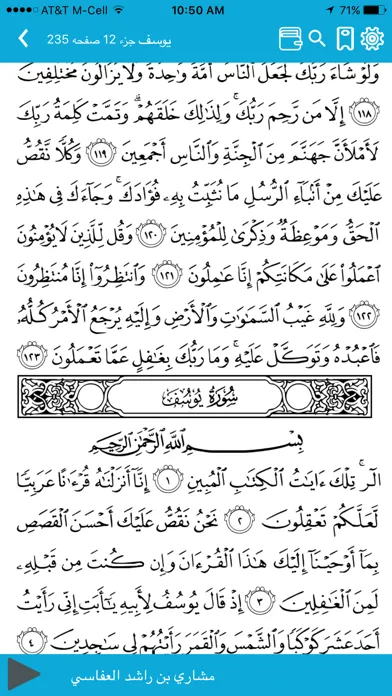 AT&T M-Cell 10:50 AM 71%
يوسف جزء 12 صفحه 235
وَلَوْ شَاءَ رَبُّكَ لَجَعَلَ النَّاسَ أُمَّةً وَاحِدَةً وَلَا يَزَالُونَ مُخْتَلِفِينَ
﴿١١٨﴾ إِلَّا مَن رَّحِمَ رَبُّكَ ۚ وَلِذَٰلِكَ خَلَقَهُمْ ۗ وَتَمَّتْ كَلِمَةُ رَبِّكَ
لَأَمْلَأَنَّ جَهَنَّمَ مِنَ الْجِنَّةِ وَالنَّاسِ أَجْمَعِينَ ﴿١١٩﴾ وَكُلًّا نَّقُصُّ
عَلَيْكَ مِنْ أَنبَاءِ الرُّسُلِ مَا نُثَبِّتُ بِهِ فُؤَادَكَ ۚ وَجَاءَكَ فِي هَٰذِهِ
الْحَقُّ وَمَوْعِظَةٌ وَذِكْرَىٰ لِلْمُؤْمِنِينَ ﴿١٢٠﴾ وَقُل لِّلَّذِينَ لَا يُؤْمِنُونَ
اعْمَلُوا عَلَىٰ مَكَانَتِكُمْ إِنَّا عَامِلُونَ ﴿١٢١﴾ وَانتَظِرُوا إِنَّا مُنتَظِرُونَ
﴿١٢٢﴾ وَلِلَّهِ غَيْبُ السَّمَاوَاتِ وَالْأَرْضِ وَإِلَيْهِ يُرْجَعُ الْأَمْرُ كُلُّهُ
فَاعْبُدْهُ وَتَوَكَّلْ عَلَيْهِ ۚ وَمَا رَبُّكَ بِغَافِلٍ عَمَّا تَعْمَلُونَ ﴿١٢٣﴾
سُورَةُ يُوسُفَ
بِسْمِ اللَّهِ الرَّحْمَٰنِ الرَّحِيمِ
الر ۚ تِلْكَ آيَاتُ الْكِتَابِ الْمُبِينِ ﴿١﴾ إِنَّا أَنزَلْنَاهُ قُرْآنًا عَرَبِيًّا
لَّعَلَّكُمْ تَعْقِلُونَ ﴿٢﴾ نَحْنُ نَقُصُّ عَلَيْكَ أَحْسَنَ الْقَصَصِ
بِمَا أَوْحَيْنَا إِلَيْكَ هَٰذَا الْقُرْآنَ وَإِن كُنتَ مِن قَبْلِهِ
لَمِنَ الْغَافِلِينَ ﴿٣﴾ إِذْ قَالَ يُوسُفُ لِأَبِيهِ يَا أَبَتِ إِنِّي رَأَيْتُ
أَحَدَ عَشَرَ كَوْكَبًا وَالشَّمْسَ وَالْقَمَرَ رَأَيْتُهُمْ لِي سَاجِدِينَ ﴿٤﴾
مشاري بن راشد العفاسي